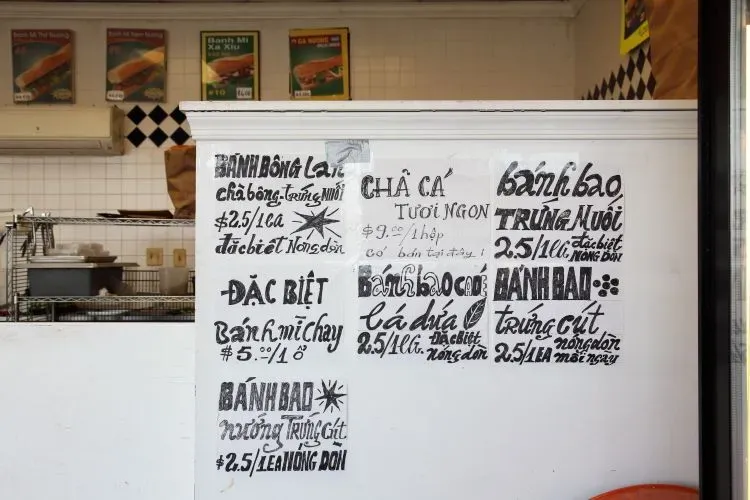 Banh Mi
Xa Xiu
#10
GA NUONG
BÁNH BÔNG Lan
chà bông-trứng MUỐI
$2.5/1ea
đặc biệt Nóng dòn
CHẢ CÁ
TƯƠI NGON
$9.00/1 hộp
có bán tại đây !
bánh bao
TRỨNG MUỐI
2.5/1EA đặc biệt
NÓNG DÒN
ĐẶC BIỆT
Bánh mì chay
$5.00/1 ổ
Bánh bao CADÉ
lá dứa
2.5/1ea. Đặc Biệt
nóng dòn
BÁNH BAO
trứng cút
2.5/1EA nóng dòn
mỗi ngày
BÁNH BAO
nướng TRỨNG Cút
$2.5/1EA NÓNG DÒN